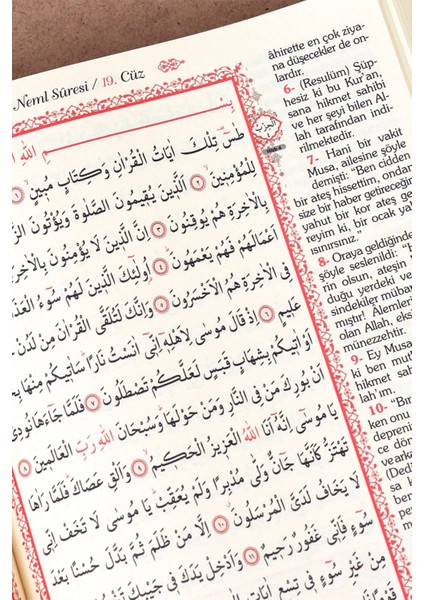 Neml Sûresi / 19. Cüz
طٰسٓ تِلْكَ اٰيَاتُ الْقُرْاٰنِ وَكِتَابٍ مُبٖينٍ ١
لِلْمُؤْمِنٖينَ ٢ اَلَّذٖينَ يُقٖيمُونَ الصَّلٰوةَ وَيُؤْتُونَ
بِالْاٰخِرَةِ هُمْ يُوقِنُونَ ٣ اِنَّ الَّذٖينَ لَا يُؤْمِنُونَ بِالْاٰخِرَةِ
اَعْمَالَهُمْ فَهُمْ يَعْمَهُونَ ٤ اُولٰٓئِكَ الَّذٖينَ لَهُمْ سُٓوءُ
فِي الْاٰخِرَةِ هُمُ الْاَخْسَرُونَ ٥ وَاِنَّكَ لَتُلَقَّى الْقُرْاٰنَ مِنْ لَدُنْ
عَلٖيمٍ ٦ اِذْ قَالَ مُوسٰى لِاَهْلِهٖٓ اِنّٖٓي اٰنَسْتُ نَارًا سَاٰتٖيكُمْ مِنْهَا
اَوْ اٰتٖيكُمْ بِشِهَابٍ قَبَسٍ لَعَلَّكُمْ تَصْطَلُونَ ٧ فَلَمَّا جَٓاءَهَا نُودِيَ
اَنْ بُورِكَ مَنْ فِي النَّارِ وَمَنْ حَوْلَهَا وَسُبْحَانَ اللّٰهِ رَبِّ الْعَالَمٖينَ ٨
يَا مُوسٰٓى اِنَّهُٓ اَنَا اللّٰهُ الْعَزٖيزُ الْحَكٖيمُ ٩ وَاَلْقِ عَصَاكَ فَلَمَّا رَاٰهَا
تَهْتَزُّ كَاَنَّهَا جَٓانٌّ وَلّٰى مُدْبِرًا وَلَمْ يُعَقِّبْ يَا مُوسٰى لَا تَخَفْ اِنّٖي
لَا يَخَافُ لَدَيَّ الْمُرْسَلُونَ ١٠ اِلَّا مَنْ ظَلَمَ ثُمَّ بَدَّلَ حُسْنًا بَعْدَ
سُٓوءٍ فَاِنّٖي غَفُورٌ رَحٖيمٌ ١١ وَاَدْخِلْ يَدَكَ فٖي جَيْبِكَ
مِنْ غَيْرِ سُٓوءٍ فٖي تِسْعِ اٰيَاتٍ
âhirette en çok ziya-
na düşecekler de on-
lardır.
6- (Resulüm) Şüp-
hesiz ki bu Kur'an,
sana hikmet sahibi
ve her şeyi bilen Al-
lah tarafından indi-
rilmektedir.
7- Hani bir vakit
Musa, ailesine şöyle
demişti: "Ben cidden
bir ateş hissettim, ondan
size bir haber getireceğim
yahut bir kor ateş
reyim ki, bir ocak
ısınırsınız."
8- Oraya geldiğinde
şöyle seslenildi:
rin olsun, ateşin
duğu yerdeki ve
sindekiler mübarek
mıştır! Âlemlerin
olan Allah, eksi
münezzehtir.
9- Ey Musa
ki ben mutl
hikmet sahi
lah'im.
10- "Bir
ken onu
deprenir
ce dön
ve arka
(Dedi